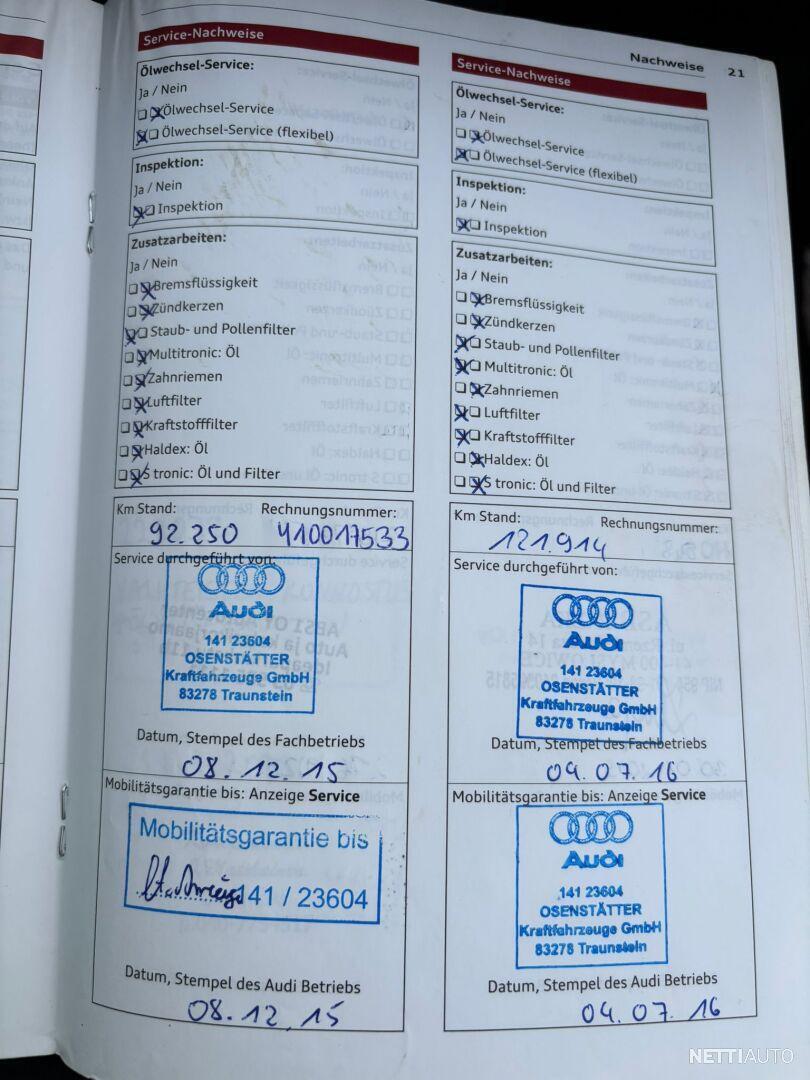 Nachweise 21
Service-Nachweise
Ölwechsel-Service:
Ja / Nein
Ölwechsel-Service
Ölwechsel-Service (flexibel)
Inspektion:
Ja / Nein
Inspektion
Zusatzarbeiten:
Ja / Nein
Bremsflüssigkeit
Zündkerzen
Staub- und Pollenfilter
Multitronic: Öl
Zahnriemen
Luftfilter
Kraftstofffilter
Haldex: Öl
S tronic: Öl und Filter
Km Stand: Rechnungsnummer:
92.250 410017533
Service durchgeführt von:
Audi
141 23604
OSENSTÄTTER
Kraftfahrzeuge GmbH
83278 Traunstein
Datum, Stempel des Fachbetriebs
08.12.15
Mobilitätsgarantie bis: Anzeige Service
Mobilitätsgarantie bis
141 / 23604
Datum, Stempel des Audi Betriebs
08.12.15
Service-Nachweise
Ölwechsel-Service:
Ja / Nein
Ölwechsel-Service
Ölwechsel-Service (flexibel)
Inspektion:
Ja / Nein
Inspektion
Zusatzarbeiten:
Ja / Nein
Bremsflüssigkeit
Zündkerzen
Staub- und Pollenfilter
Multitronic: Öl
Zahnriemen
Luftfilter
Kraftstofffilter
Haldex: Öl
S tronic: Öl und Filter
Km Stand: Rechnungsnummer:
121.914
Service durchgeführt von:
Audi
141 23604
OSENSTÄTTER
Kraftfahrzeuge GmbH
83278 Traunstein
Datum, Stempel des Fachbetriebs
04.07.16
Mobilitätsgarantie bis: Anzeige Service
Audi
141 23604
OSENSTÄTTER
Kraftfahrzeuge GmbH
83278 Traunstein
Datum, Stempel des Audi Betriebs
04.07.16
NETTIAUTO